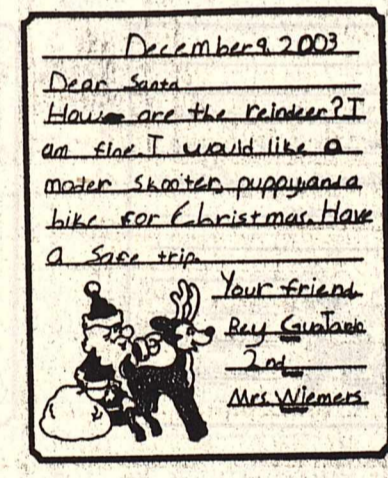 December 9, 2003
Dear Santa
How are the reindeer? I
am fine. I would like a
moder Skooter, puppy, and a
bike for Christmas. Have
a Safe trip.
Your friend
Rey Gustavo
2nd
Mrs. Wiemers